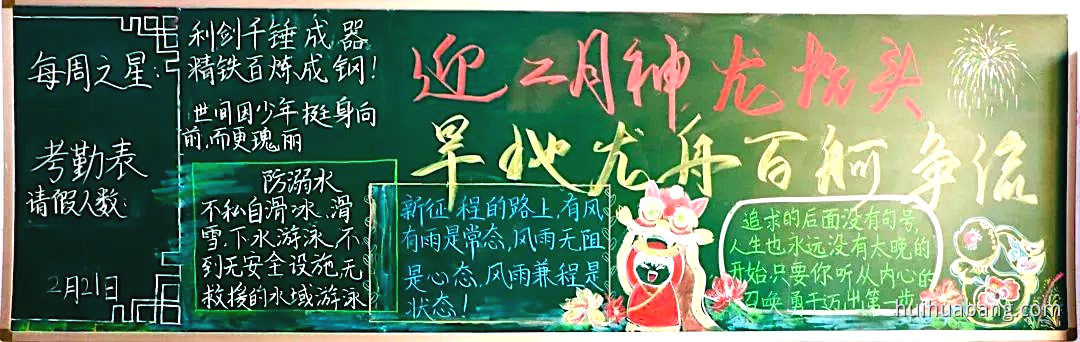 每周之星:
考勤表
请假人数:
2月21日
利剑千锤成器
精铁百炼成钢!
世间因少年挺身向
前,而更瑰丽
防溺水
不私自滑冰、滑
雪,下水游泳,不
到无安全设施,无
救援的水域游泳
迎二月神龙抬头
旱地龙舟百舸争流
新征程的路上,有风
有雨是常态,风雨无阻
是心态,风雨兼程是
状态!
追求的后面没有句号,
人生也永远没有太晚的
开始,只要你听从内心的
召唤勇于迈出第一步
huihuabang.com